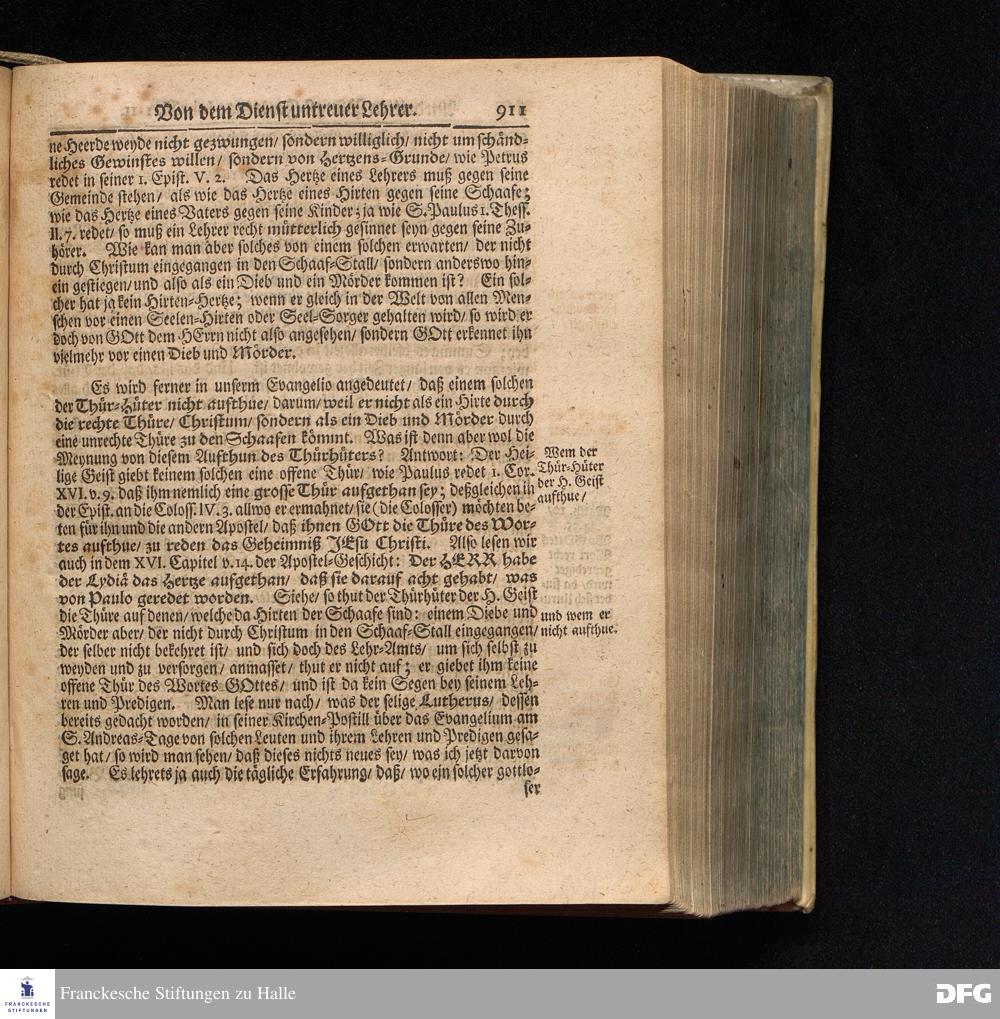 Von dem Dienst untreuer Lehrer. 911
ne Heerde weyde nicht gezwungen/ sondern williglich/ nicht um schänd-
liches Gewinstes willen/ sondern von Hertzens-Grunde/ wie Petrus
redet in seiner 1. Epist. V. 2. Das Hertze eines Lehrers muß gegen seine
Gemeinde stehen/ als wie das Hertze eines Hirten gegen seine Schaafe;
wie das Hertze eines Vaters gegen seine Kinder; ja wie S. Paulus 1. Thess.
II. 7. redet/ so muß ein Lehrer recht mütterlich gesinnet seyn gegen seine Zu-
hörer. Wie kan man aber solches von einem solchen erwarten/ der nicht
durch Christum eingegangen in den Schaaf-Stall/ sondern anderswo hin-
ein gestiegen/ und also als ein Dieb und ein Mörder kommen ist? Ein sol-
cher hat ja kein Hirten-Hertze; wenn er gleich in der Welt von allen Men-
schen vor einen Seelen-Hirten oder Seel-Sorger gehalten wird/ so wird er
doch von GOtt dem HErrn nicht also angesehen/ sondern GOtt erkennet ihn
vielmehr vor einen Dieb und Mörder.
Es wird ferner in unserm Evangelio angedeutet/ daß einem solchen
der Thür-Hüter nicht aufthue/ darum/ weil er nicht als ein Hirte durch
die rechte Thüre/ Christum/ sondern als ein Dieb und Mörder durch
eine unrechte Thüre zu den Schaafen kömmt. Was ist denn aber wol die
Meynung von diesem Aufthun des Thürhüters? Antwort: Der Hei-
lige Geist giebt keinem solchen eine offene Thür/ wie Paulus redet 1. Cor.
XVI. v. 9. daß ihm nemlich eine grosse Thür aufgethan sey; deßgleichen in
der Epist. an die Coloss. IV. 3. allwo er ermahnet/ sie (die Colosser) möchten be-
ten für ihn und die andern Apostel/ daß ihnen GOtt die Thüre des Wor-
tes aufthue/ zu reden das Geheimniß JEsu Christi. Also lesen wir
auch in dem XVI. Capitel v. 14. der Apostel-Geschicht: Der HERR habe
der Lydiä das Hertze aufgethan/ daß sie darauf acht gehabt/ was
von Paulo geredet worden. Siehe/ so thut der Thürhüter der H. Geist
die Thüre auf denen/ welche da Hirten der Schaafe sind: einem Diebe und
Mörder aber/ der nicht durch Christum in den Schaaf-Stall eingegangen/
der selber nicht bekehret ist/ und sich doch des Lehr-Amts/ um sich selbst zu
weyden und zu versorgen/ anmasset/ thut er nicht auf; er giebet ihm keine
offene Thür des Wortes GOttes/ und ist da kein Segen bey seinem Leh-
ren und Predigen. Man lese nur nach/ was der selige Lutherus/ dessen
bereits gedacht worden/ in seiner Kirchen-Postill über das Evangelium am
S. Andreas-Tage von solchen Leuten und ihrem Lehren und Predigen gesa-
get hat/ so wird man sehen/ daß dieses nichts neues sey/ was ich jetzt darvon
sage. Es lehrets ja auch die tägliche Erfahrung/ daß/ wo ein solcher gottlo-
ser
Wem der
Thür-Hüter
der H. Geist
aufthue/
und wem er
nicht aufthue.
FRANCKESCHE
STIFTUNGEN
Franckesche Stiftungen zu Halle
DFG